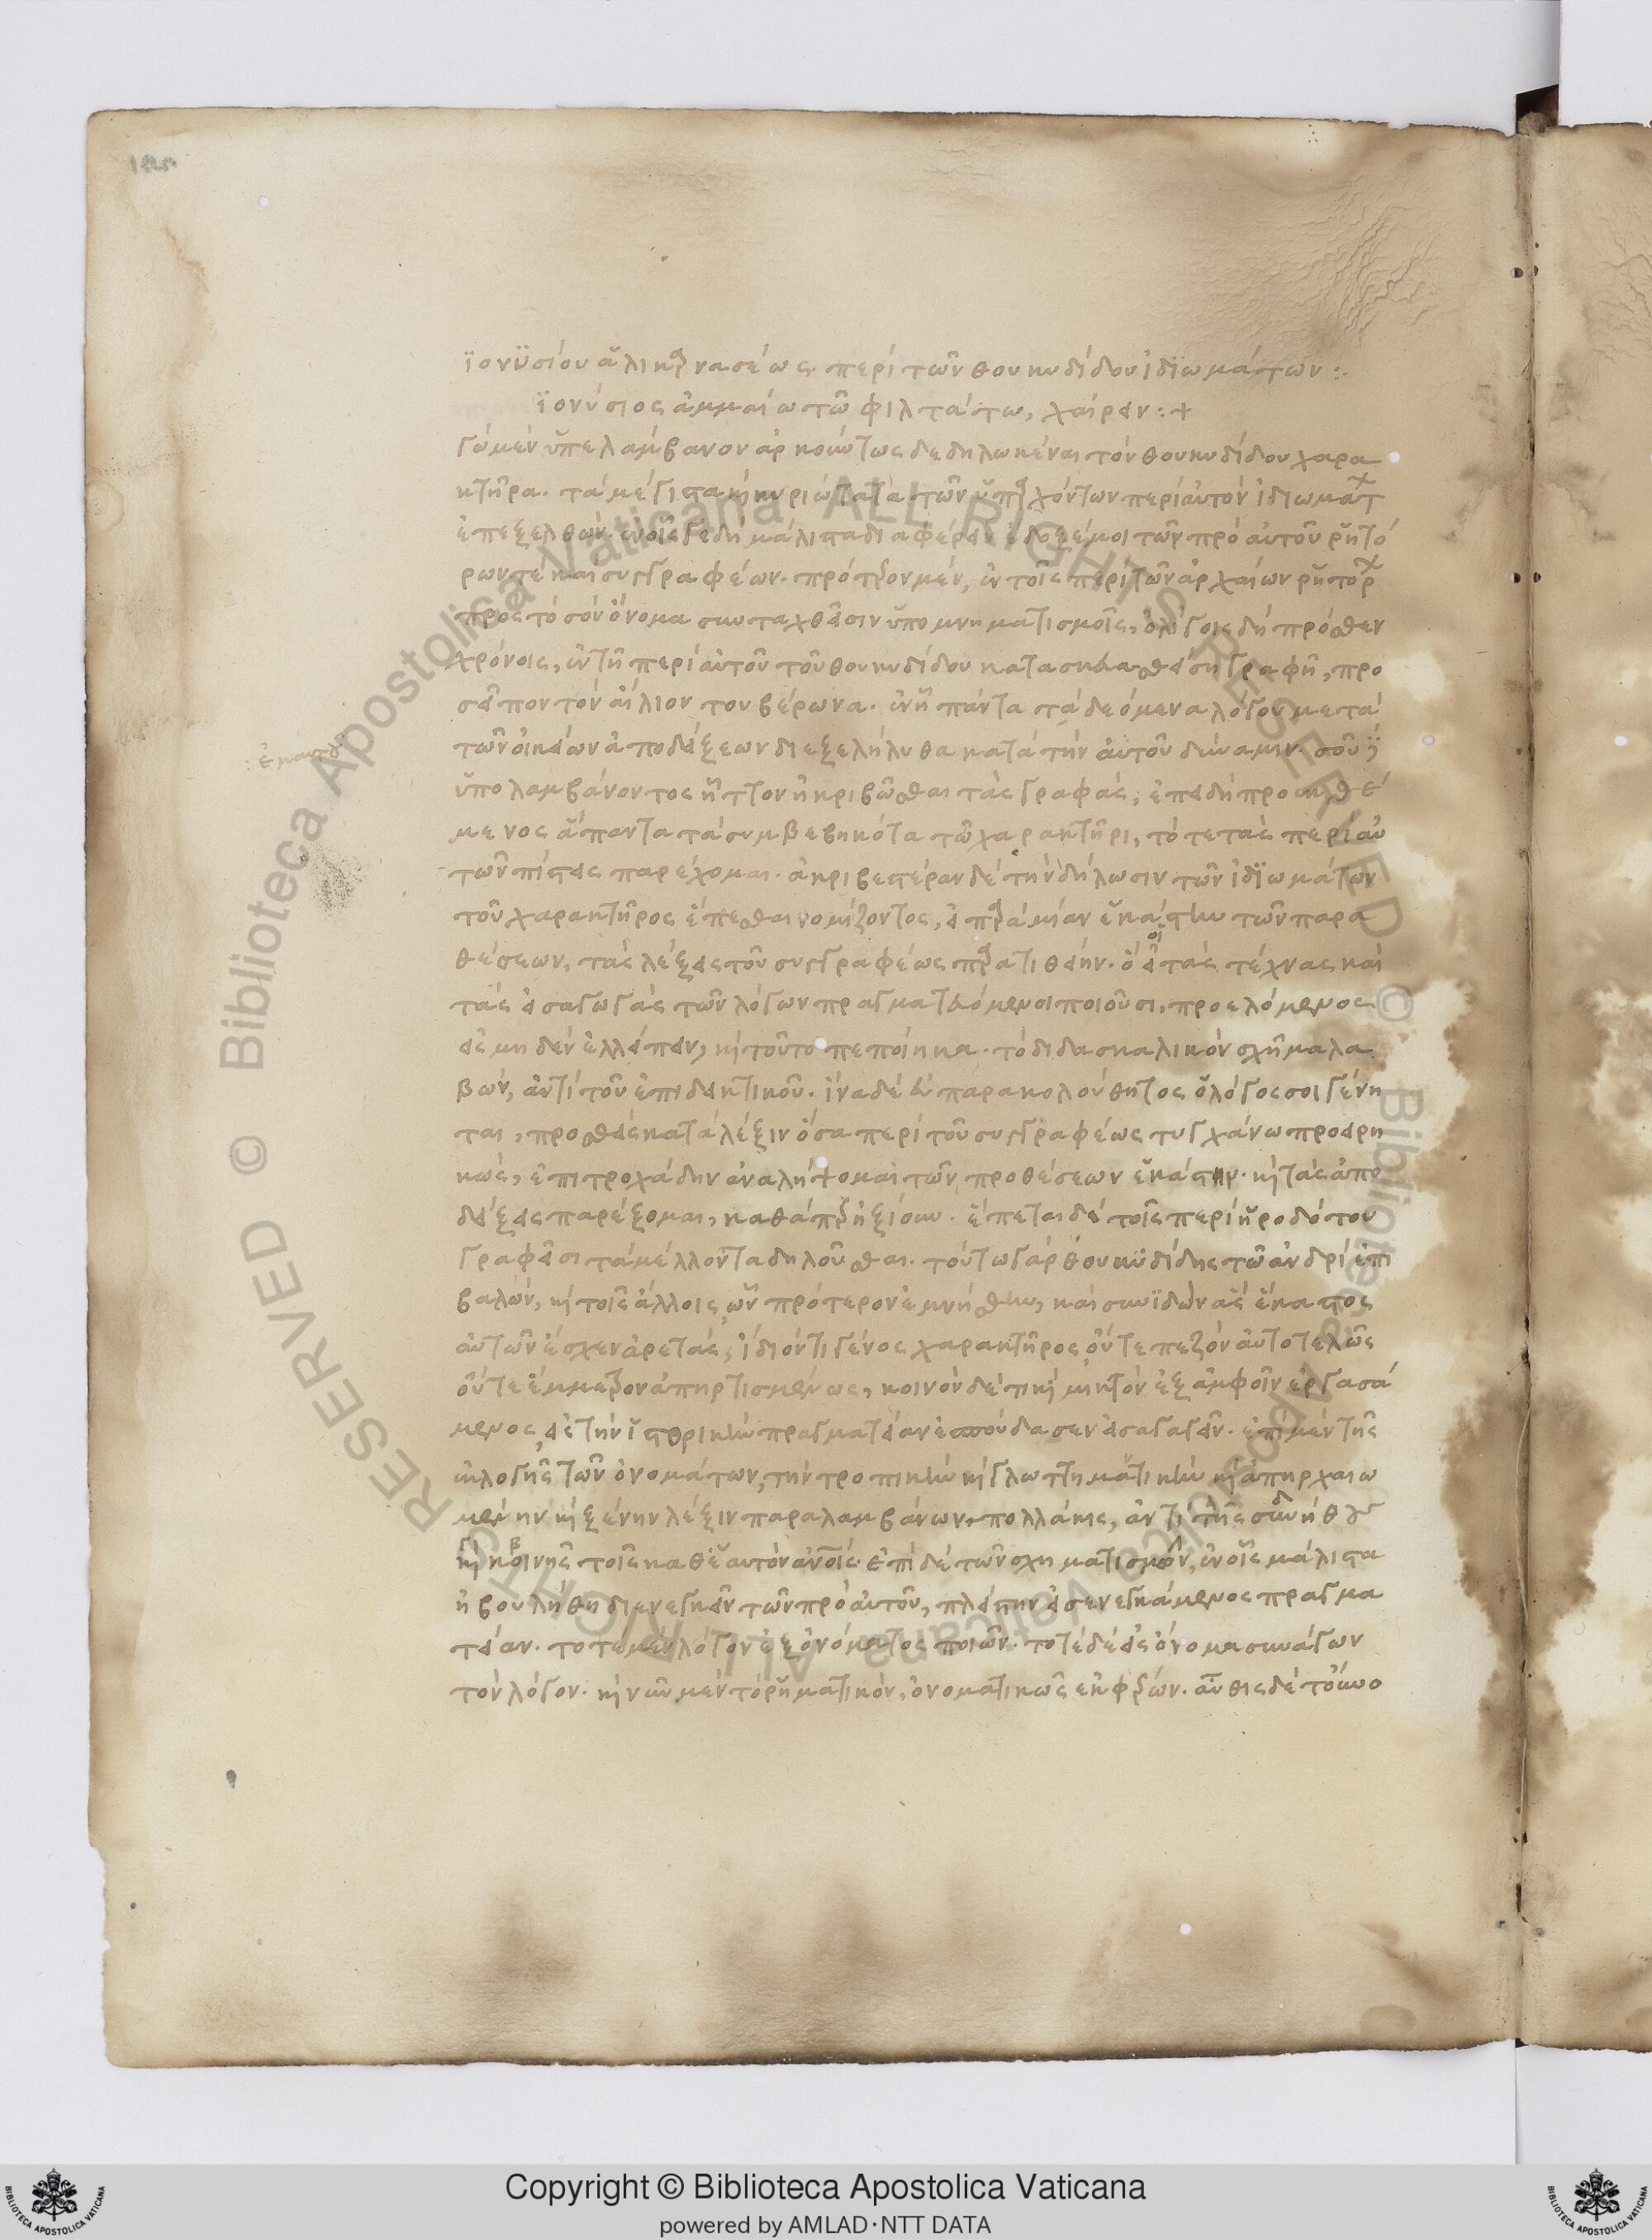 ϊονϋσίου ἁλικρνασέως περὶ τῶν θουκυδίδου ἰδϊωμάτων :.
ϊονύσιος ἀμμαίω τῶ φιλτάτω, χαίρειν :+
γὼ μὲν ὑπελάμβανον ἀρκούντως δεδηλωκέναι τὸν θουκυδίδου χαρα
κτῆρα. τὰ μέγιστα κὶ κυριώτατα τῶν ὑπαρχόντων περὶ αὐτὸν ἰδιωμάτ
ἐπεξελθών. ἐν οἷς γε δὴ μάλιστα διαφέρειν ἔδοξέ μοι τῶν πρὸ αὐτοῦ ῥητό
ρων τὲ καὶ συγγραφέων. πρότερον μὲν, ἐν τοῖς περὶ τῶν ἀρχαίων ῥητόρ
πρὸς τὸ σὸν ὄνομα συνταχθεῖσιν ὑπομνηματισμοῖς, ὀλίγοις δὴ πρόσθεν
χρόνοις, ἐν τῇ περὶ αὐτοῦ τοῦ θουκυδίδου κατασκευασθείση γραφῇ, προ
σεῖπον τὸν αἴλιον τουβέρωνα. ἐν ᾗ πάντα τὰ δεόμενα λόγου μετὰ
τῶν οἰκείων ἀποδείξεων διεξελήλυθα κατὰ τὴν αὑτοῦ δύναμιν. σοῦ
: ἐμαυτ
ὑπολαμβάνοντος ἧττον ἠκριβῶσθαι τὰς γραφάς, ἐπειδὴ προεκθέ
μενος ἅπαντα τὰ συμβεβηκότα τῶ χαρακτῆρι, τότε τὰς περὶ αὐ
τῶν πίστεις παρέχομαι. ἀκριβεστέραν δὲ τὴν δήλωσιν τῶν ἰδϊωμάτων
τοῦ χαρακτῆρος ἕπεσθαι νομίζοντος, εἰ παρὰ μίαν ἑκάστην τῶν παρα
θέσεων, τὰς λέξεις τοῦ συγγραφέως παρατιθείην. ὃ οἱ τὰς τέχνας καὶ
τὰς εἰσαγωγὰς τῶν λόγων πραγματευόμενοι ποιοῦσι, προελόμενος
εἰς μηδὲν ἐλλείπειν, κὶ τοῦτο πεποίηκα. τὸ διδασκαλικὸν σχῆμα λα
βών, ἀντὶ τοῦ ἐπιδεικτικοῦ. ἵνα δὲ εὐπαρακολούθητος ὁ λόγος σοι γένη
ται, προσθεὶς κατὰ λέξιν ὅσα περὶ τοῦ συγγραφέως τυγχάνω προειρη
κώς, ἐπιτροχάδην ἀναλήψομαι τῶν προθέσεων ἑκάστην. κὶ τὰς ἀπο
δείξεις παρέξομαι, καθάπερ ἠξίουν. ἕπεται δὲ τοῖς περὶ ἡροδότου
γραφεῖσι τὰ μέλλοντα δηλοῦσθαι. τούτω γὰρ θουκϋδίδης τῶ ἀνδρὶ ἐπι
βαλὼν, κὶ τοῖς ἄλλοις ὧν πρότερον ἐμνήσθην, καὶ συνϊδὼν ἃς ἕκαστος
αὐτῶν ἔσχεν ἀρετάς, ἴδιόν τι γένος χαρακτῆρος οὔτε πεζὸν αὐτοτελῶς
οὔτε ἔμμετρον ἀπηρτισμένως, κοινὸν δέ τι κὶ μικτὸν ἐξ ἀμφοῖν ἐργασά
μενος, εἰς τὴν ἱστορικὴν πραγματείαν ἐσπούδασεν εἰσαγαγεῖν. ἐπὶ μὲν τῆς
ἐκλογῆς τῶν ὀνομάτων, τὴν τροπικὴν κὶ γλωττηματικὴν κὶ ἀπηρχαιω
μένην κὶ ξένην λέξιν παραλαμβάνων πολλάκις, ἀντὶ τῆς συνήθους
κὶ κοινῆς τοῖς καθ' ἑαυτὸν ἀνοῖς. ἐπὶ δὲ τῶν σχηματισμῶν, ἐν οἷς μάλιστα
ἠβουλήθη διενεγκεῖν τῶν πρὸ αὐτοῦ, πλείστην εἰσενεγκάμενος πραγμα
τείαν. τοτὲ μὲν λόγον ἐξ ὀνόματος ποιῶν. τοτὲ δὲ εἰς ὄνομα συνάγων
τὸν λόγον. κὶ νῦν μὲν τὸ ῥηματικὸν, ὀνοματικῶς ἐκφέρων. αὖθις δὲ τοὔνο